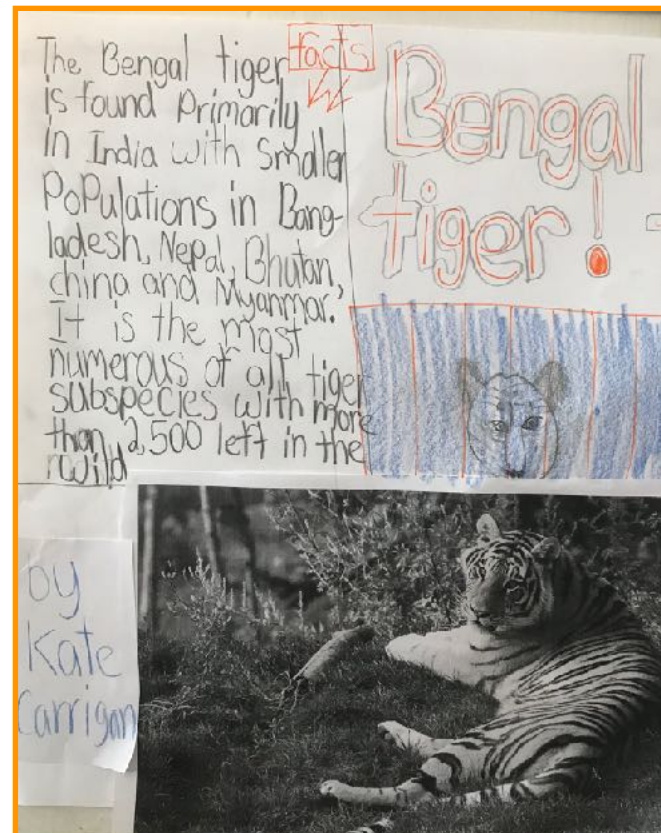 The Bengal tiger
is found primarily
in India with smaller
Populations in Bang-
ladesh, Nepal, Bhutan,
china and Myanmar.
It is the most
numerous of all tiger
subspecies with more
than 2,500 left in the
wild
facts
Bengal
tiger!
by
Kate
Carrigan